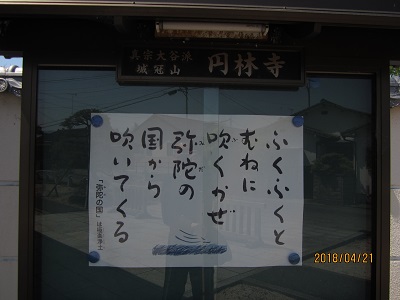 真宗大谷派
城冠山
円林寺
ふくふくと
むねに
吹くかぜ
弥陀の
国から
吹いてくる
「弥陀の国」は極楽浄土
2018/04/21